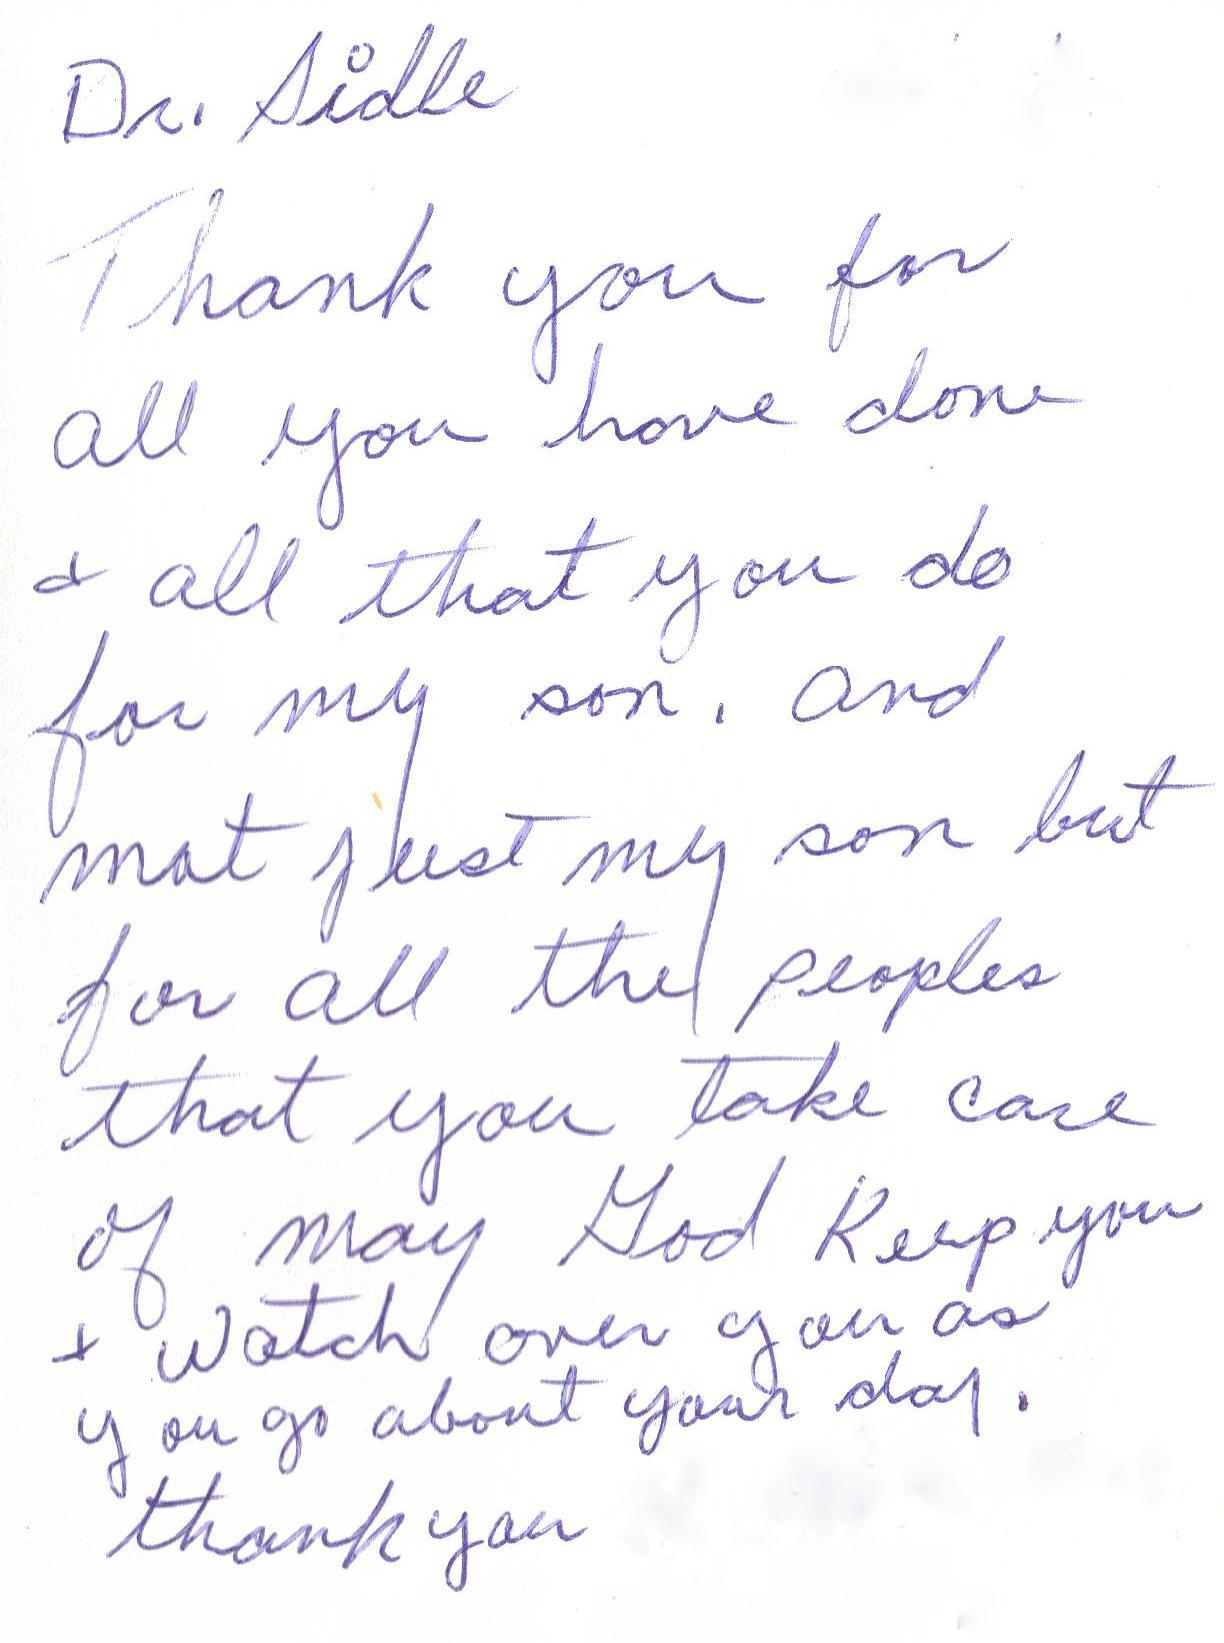 Dr. Sidle
Thank you for
all you have done
& all that you do
for my son. and
not just my son but
for all the peoples
that you take care
of may God Keep you
+ watch over you as
you go about your day.
thank you